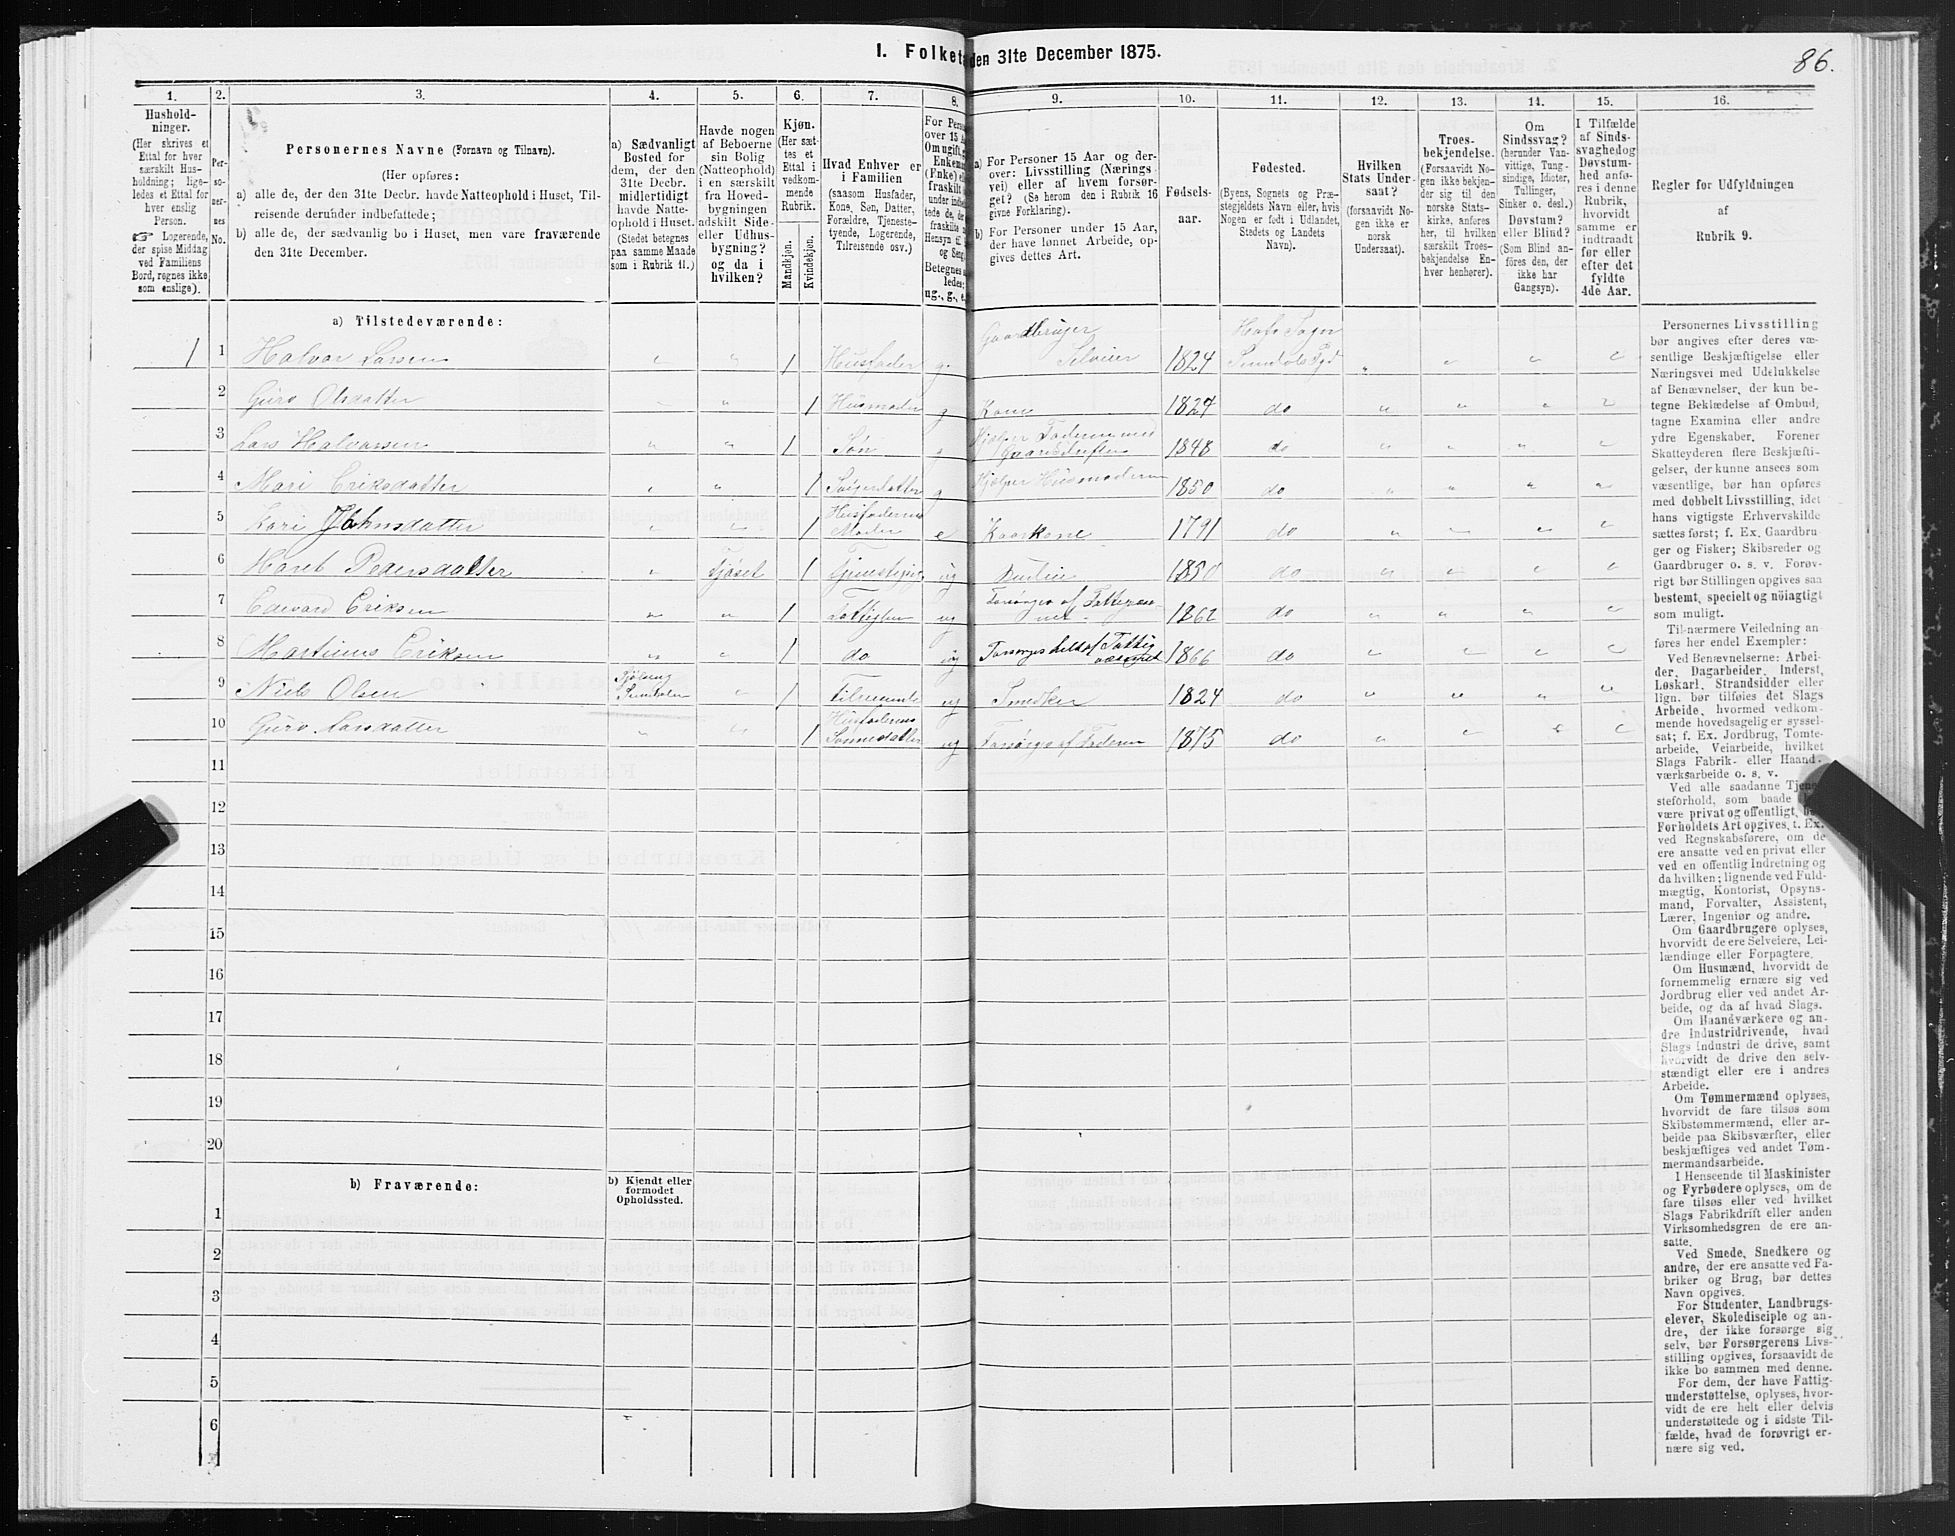 I. Folketæ den 31te December 1875.
86.
1. 2. 3. 4. 5. 6. 7. 8. 9. 10. 11. 12. 13. 14. 15. 16.
Hushold-
ninger.
(Her skrives et
Ettal for hver
særskilt Hus-
holdning; lige-
ledes et Ettal for
hver enslig
Person.
☞ Logerende,
der spise Middag
ved Familiens
Bord, regnes ikke
som enslige).
Per-
so-
ner-
nes
No.
Personernes Navne (Fornavn og Tilnavn).
(Her opføres:
a) alle de, der den 31te Decbr. havde Natteophold i Huset, Til-
reisende derunder indbefattede;
b) alle de, der sædvanlig bo i Huset, men vare fraværende
den 31te December.
a) Sædvanligt
Bosted for
dem, der den
31te Decbr.
midlertidigt
havde Natte-
ophold i Huset.
(Stedet betegnes
paa samme Maade
som i Rubrik 11.)
Havde nogen
af Beboerne
sin Bolig
(Natteophold)
i en særskilt
fra Hoved-
bygningen
adskilt Side-
eller Udhus-
bygning?
og da i
hvilken?
Kjøn.
(Her sæt-
tes et
Ettal i
vedkom-
mende
Rubrik.
Mandkjøn.
Kvindekjøn.
Hvad Enhver er
i Familien
(saasom Husfader,
Kone, Søn, Datter,
Forældre, Tjeneste-
tyende, Logerende,
Tilreisende osv.)
For Perso
over 15 A
Om ugift, g
Enkemand
(Enke) ell
fraskilt
ledes:
ug., g., e.
a) For Personer 15 Aar og der-
over: Livsstilling (Nærings
vei) eller af hvem forsør-
get? (Se herom den i Rubrik 16
givne Forklaring).
b) For Personer under 15 Aar,
der have lønnet Arbeide, op-
gives dettes Art.
Fødsels-
aar.
Fødested.
(Byens, Sognets og Præ-
stegjeldets Navn eller, hvis
Nogen er født i Udlandet,
Stedets og Landets
Navn).
Hvilken
Stats Under-
saat?
(forsaavidt No-
gen ikke er
norsk
Undersaat).
Troes-
bekjendelse.
(Forsaavidt No-
gen ikke bekjen-
der sig til den
norske Stats-
kirke, anføres
her, til hvilken
særskilt Troes-
bekjendelse En-
hver henhører).
Om
Sindssvag?
(herunder Van-
vittige, Tung-
sindige, Idioter,
Tullinger,
Sinker o. desl.)
Døvstum?
eller Blind?
(Som Blind an-
føres den, der
ikke har
Gangsyn).
I Tilfælde
af Sinds-
svaghed og
Døvstum-
hed anfø-
res i denne
Rubrik,
hvorvidt
samme er
indtraadt
før eller
efter det
fyldte
4de Aar.
Regler for Udfyldningen
af
Rubrik 9.
a) Tilstedeværende:
1 1 Halvor Larsen 1 Husfader g. Gaardbruger Selveier 1824 Sogn Sundals Pgd
2 Guro Olsdatter 1 Husmoder g Kone 1824 do
3 Lars Halvorsen 1 Søn g Hjælper Faderen med Gaardsdriften 1848 do
4 Mari Eriksdatter 1 Svigerdatter g Hjælper Husmoderen 1850 do
5 Johnsdatter 1 Husfaderens Moder e Kaarkone 1791 do
6 Marit Pedersdatter Fjøset 1 Tjenestepige ug Budeie 1850 do
7 Edevard Eriksen 1 ug Forsørges af Fattigvæsenet 1862 do
8 Martinus Eriksen 1 do ug Forsørges helt af Fattigvæsenet 1866 do
9 Niels Olsen 1 ug Snedker 1824 do
10 Guro Larsdatter 1 Husfaderens Sønnedatter ug Forsørges af Faderen 1875 do
11
12
13
14
15
16
17
18
19
20
b) Fraværende:
b) Kjendt eller
formodet
Opholdssted.
1
2
3
4
5
6
Personernes Livsstilling
bør angives efter deres væ-
sentlige Beskjæftigelse eller
Næringsvei med Udelukkelse
af Benævnelser, der kun be-
tegne Beklædelse af Ombud,
tagne Examina eller andre
ydre Egenskaber. Forener
Skatteyderen flere Beskjæfti-
gelser, der kunne ansees som
væsentlige, bør han opføres
med dobbelt Livsstilling, idet
hans vigtigste Erhvervskilde
sættes først; f. Ex. Gaardbru-
ger og Fisker; Skibsreder og
Gaardbruger o. s. v. Forøv-
rigt bør Stillingen opgives saa
bestemt, specielt og nöiagtigt
som muligt.
Til nærmere Veiledning an-
føres her endel Exempler:
Ved Benævnelserne: Arbei-
der, Dagarbeider, Inderst,
Løskarl, Strandsidder eller
lign. bør tilføies det Slags
Arbeide, hvormed vedkom-
mende hovedsagelig er syssel-
sat; f. Ex. Jordbrug, Tomte-
arbeide, Veiarbeide, hvilket
Slags Fabrik- eller Haand-
værksarbeide o. s. v.
Ved alle saadanne Tjene-
steforhold, som baade
være privat og offentligt,
Forholdets Art opgives, t. Ex.
ved Regnskabsførere, om de
ere ansatte ved en privat eller
ved en offentlig Indretning og
da hvilken; lignende ved Fuld-
mægtig, Kontorist, Opsyns-
mand, Forvalter, Assistent,
Lærer, Ingeniør og andre.
Om Gaardbrugere oplyses,
hvorvidt de ere Selveiere, Lei-
lændinge eller Forpagtere.
Om Husmænd, hvorvidt de
fornemmelig ernære sig ved
Jordbrug eller ved andet Ar-
beide, og da af hvad Slags.
Om Haandværkere og an-
dre Industridrivende, hvad
Slags Industri de drive, samt
hvorvidt de drive den selv-
stændigt eller ere i andres
Arbeide.
Om Tømmermænd oplyses,
hvorvidt de fare tilsøs som
Skibstømmermænd, eller ar-
beide paa Skibsværfter, eller
beskjæftiges ved andet Tøm-
mermandsarbeide.
I Henseende til Maskinister
og Fyrbødere oplyses, om de
fare tilsøs eller ved hvilket
Slags Fabrikdrift eller anden
Virksomhedsgren de ere an-
satte.
Ved Smede, Snedkere og
andre, der ere ansatte ved Fa-
briker og Brug, bør dettes
Navn opgives.
For Studenter, Landbrugs-
elever, Skoledisciple og an-
dre, der ikke forsørge sig
selv, bør Forsørgerens Livs-
stilling opgives, forsaavidt de
ikke bo sammen med denne.
For dem, der have Fattig-
understøttelse, oplyses, hvor-
vidt de ere helt eller delvis
understøttede og i sidste Til-
fælde, hvad de forøvrigt er-
nære sig ved.